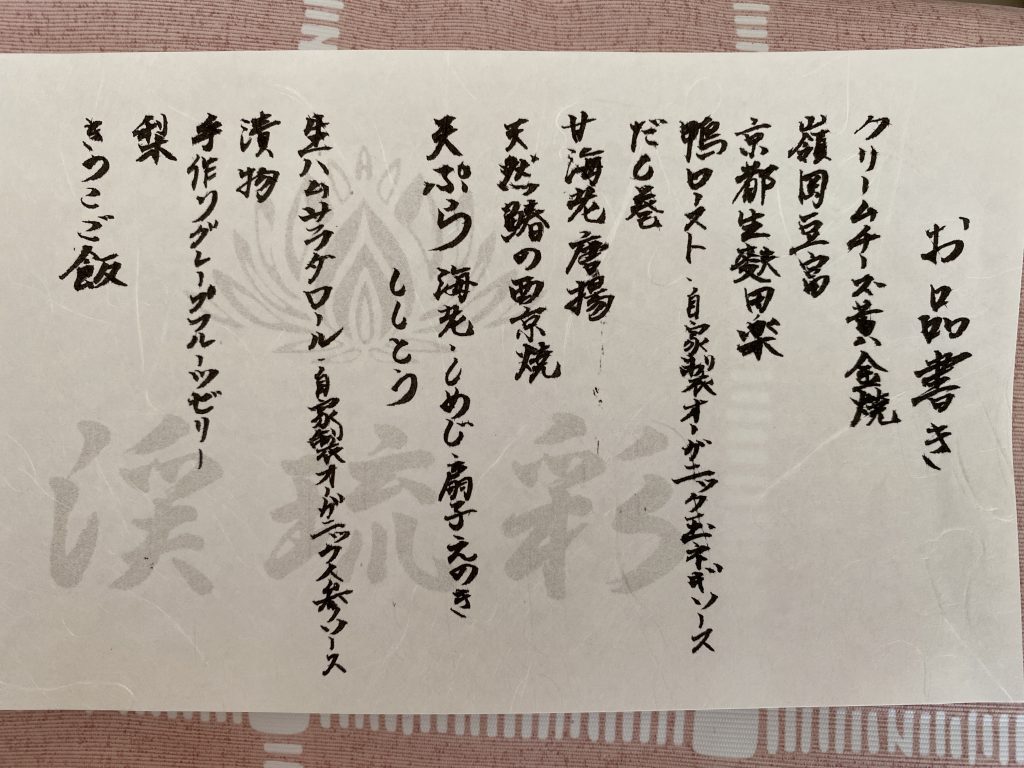 お品書き
クリームチーズ黄金焼
嶺岡豆富
京都生麩田楽
鴨ロースト、自家製オーガニック玉ネギソース
だし巻
甘海老唐揚
天然鰆の西京焼
天ぷら 海老・しめじ・扇子えのき
ししとう
生ハムサラダロール、自家製オーガニック人参ソース
漬物
手作リグレープフルーツゼリー
梨
きのこご飯
彩琉渓